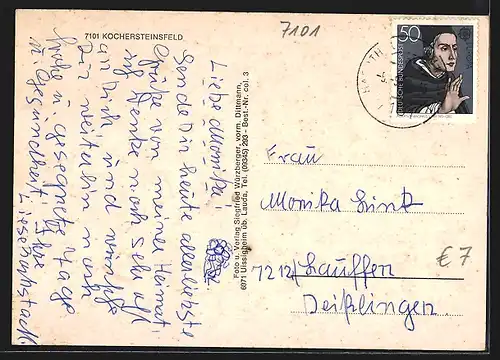 7101 KOCHERSTEINSFELD
7101
Liebe Monika!
Sende Dir heute allerliebste
Grüße von meiner Heimat
denke noch sehr oft
an Dich, und wünsche
Dir weiterhin noch
frohe u. gesegnete Tage
u. Gesundheit. Ihre
Foto u. Verlag Siegfried Würzberger, vorm. Dittmann,
6971 Uissigheim üb. Lauda, Tel. (09345) 293 - Best.-Nr. col. 3
50
DEUTSCHE BUNDESPOST
Frau
Monika Link
7212 Lauffen
Deißlingen.
€ 7